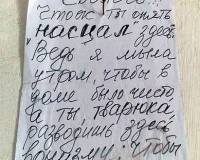 Что ж ты опять
"насцал" здесь.
Ведь я мыла
утром, чтобы в
доме было чисто
а ты, тварюка
разводишь здесь
чтобы